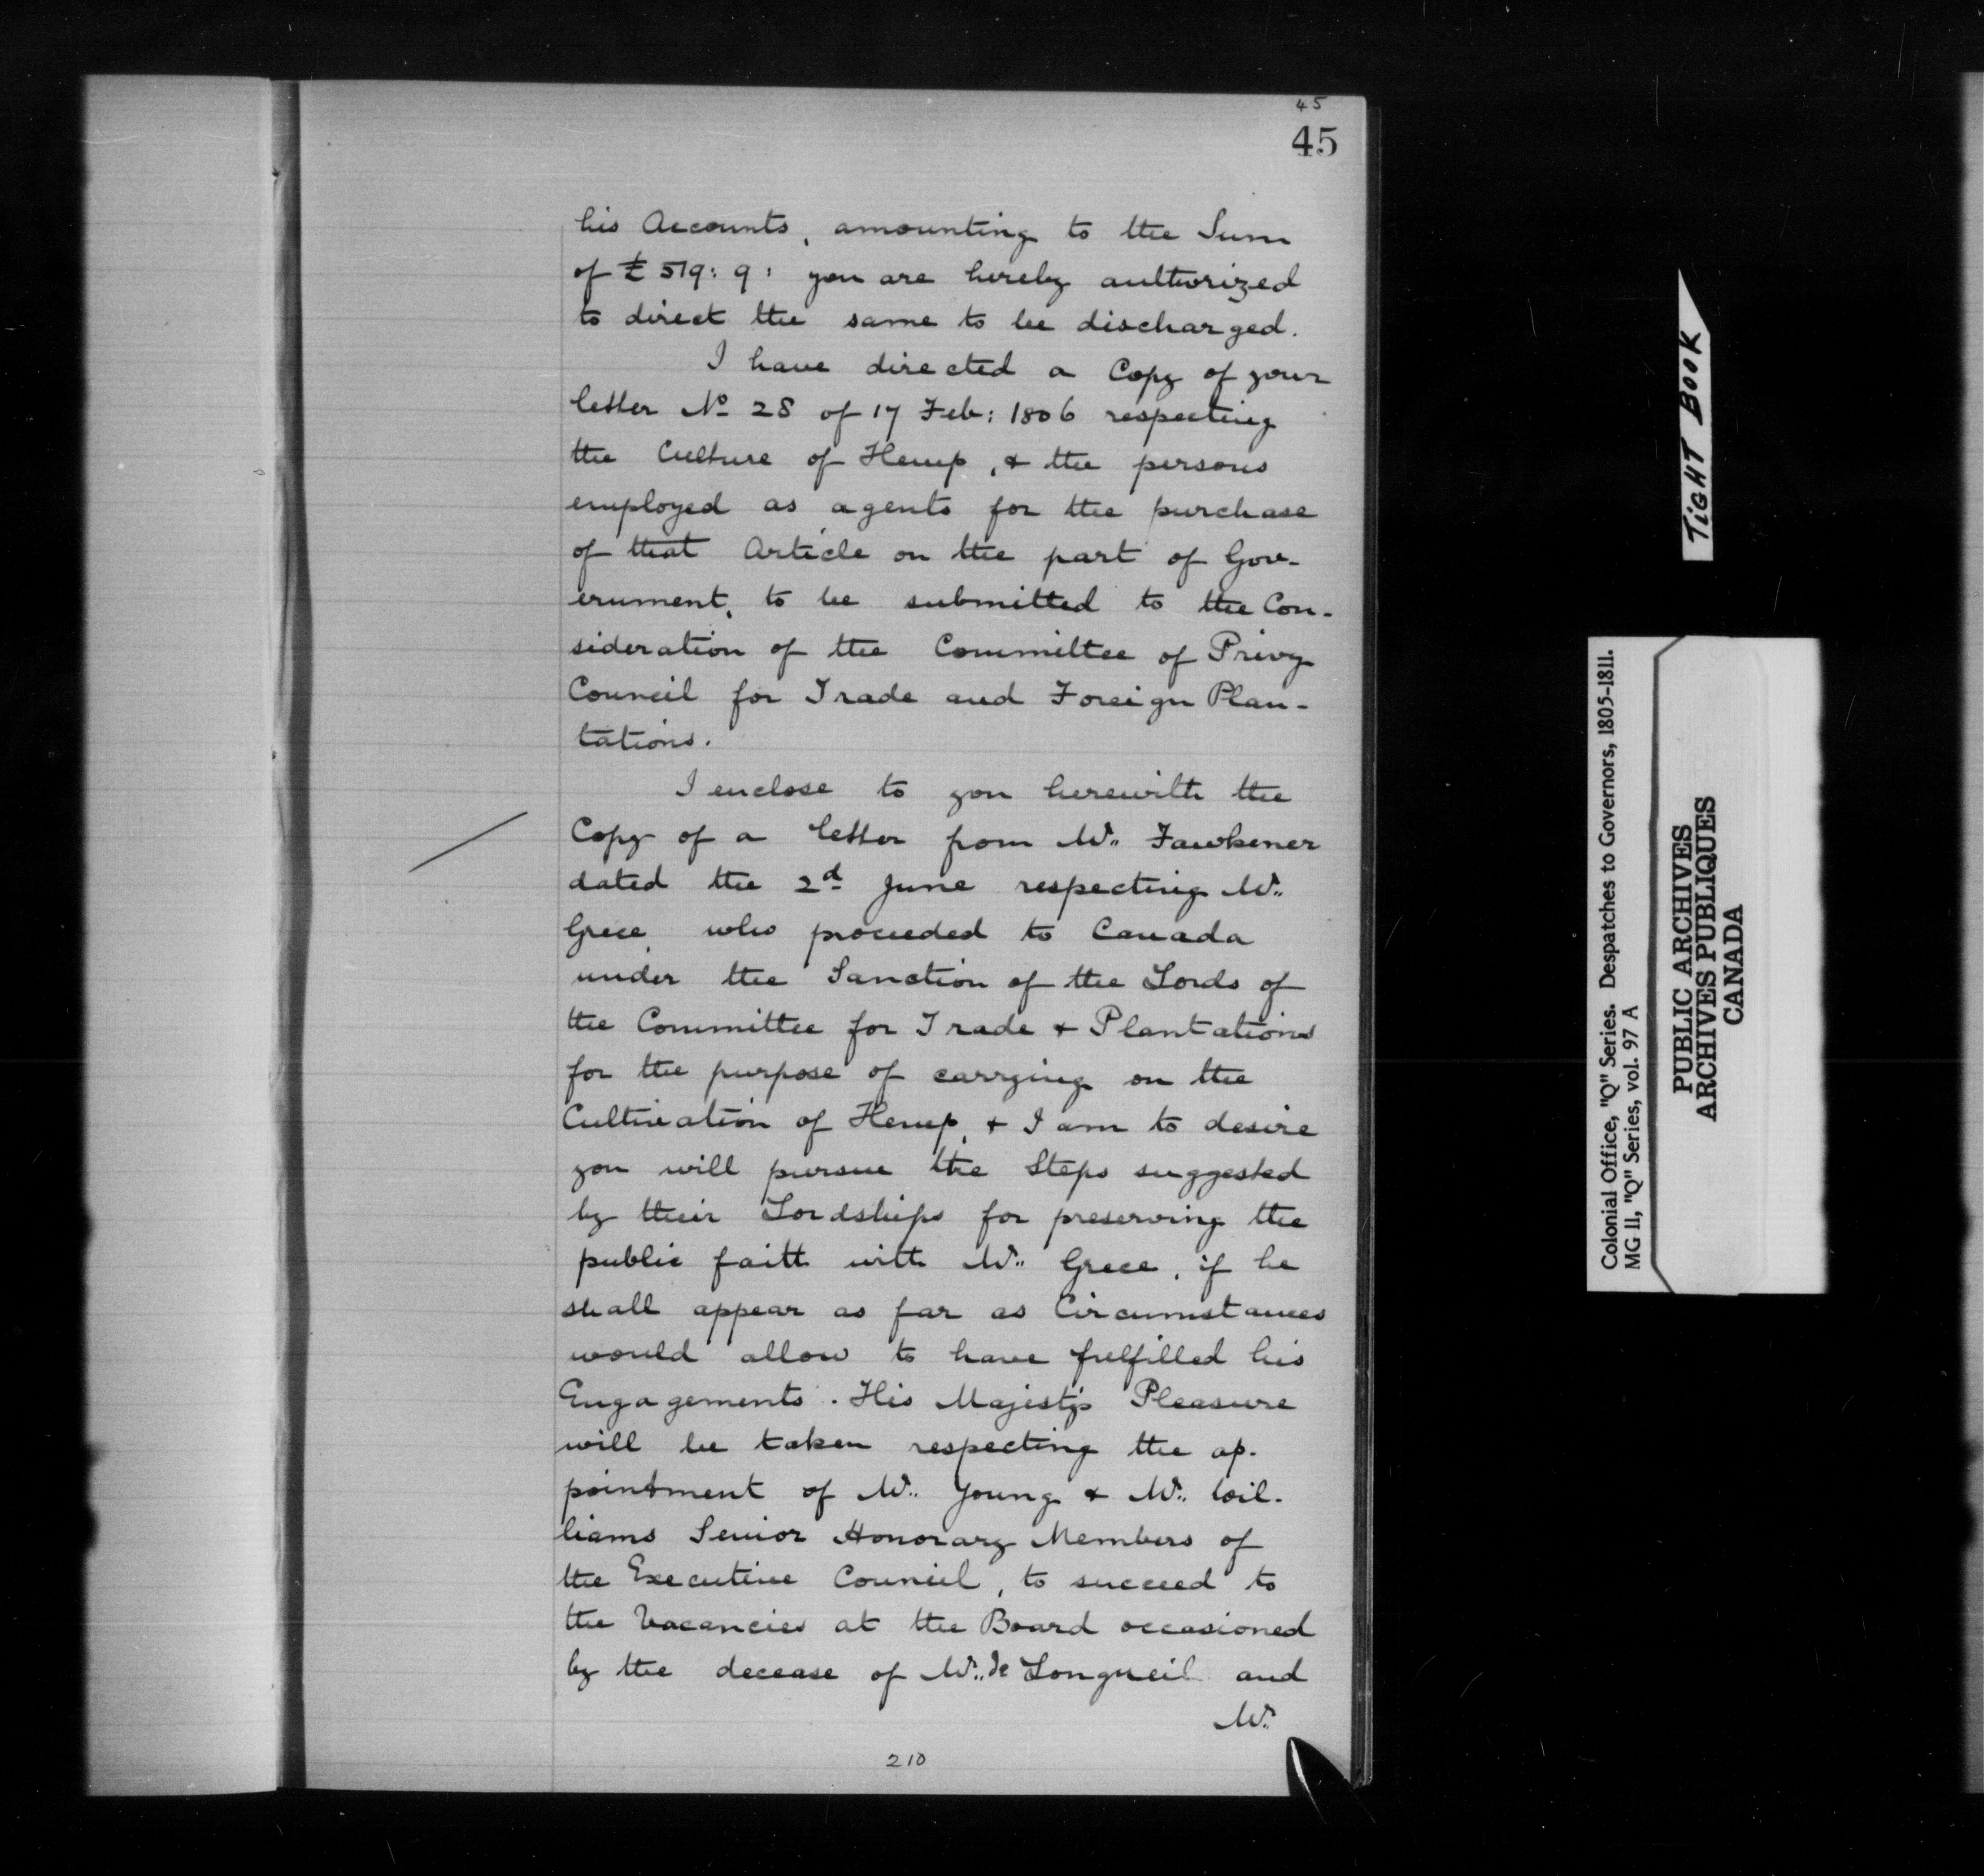 45
45
his Accounts, amounting to the Sum
of £ 519: 9: you are hereby authorized
to direct the same to be discharged.
I have directed a Copy of your
letter No 28 of 17 Feb: 1806 respecting
the Culture of Hemp, & the persons
employed as agents for the purchase
of that Article on the part of Gov-
ernment, to be submitted to the Con-
sideration of the Committee of Privy
Council for Trade and Foreign Plan-
tations.
I enclose to you herewith the
Copy of a letter from Mr. Fawkener
dated the 2d June respecting Mr.
Grece, who proceeded to Canada
under the Sanction of the Lords of
the Committee for Trade & Plantations
for the purpose of carrying on the
Cultivation of Hemp, & I am to desire
you will pursue the Steps suggested
by their Lordships for preserving the
public faith with Mr. Grece, if he
shall appear as far as Circumstances
would allow to have fulfilled his
Engagements. His Majesty's Pleasure
will be taken respecting the ap-
pointment of Mr. Young & Mr. Wil-
liams Senior Honorary Members of
the Executive Council, to succeed to
the Vacancies at the Board occasioned
by the decease of Mr. de Longueil and
Mr.
210
TIGHT BOOK
Colonial Office, "Q" Series. Despatches to Governors, 1805-1811.
MG 11, "Q" Series, vol. 97 A
PUBLIC ARCHIVES
ARCHIVES PUBLIQUES
CANADA